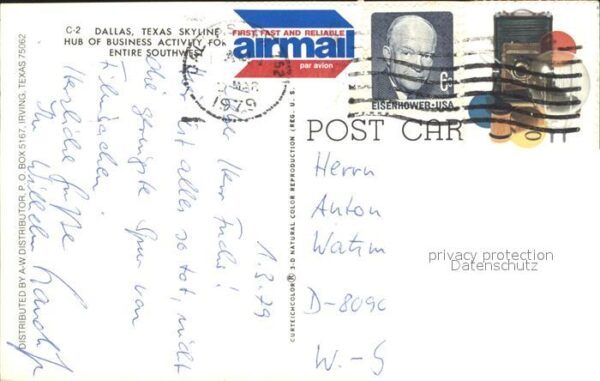 C-2 DALLAS, TEXAS SKYLINE
HUB OF BUSINESS ACTIVITY FOR
ENTIRE SOUTHWEST
FIRST, FAST AND RELIABLE
airmail
par avion
EISENHOWER·USA
6c
1979
POST CAR
1.3.79
Herr Fuchs!
ist alles so tot, nicht
die geringste Spur von
Herzliche Grüße
Ihr Wilhelm
Herrn
Anton
D-8090
W.-
privacy protection
Datenschutz
DISTRIBUTED BY A-W DISTRIBUTOR, P. O. BOX 5167, IRVING, TEXAS 75062
CURTEICHCOLOR® 3-D NATURAL COLOR REPRODUCTION (REG. U. S.